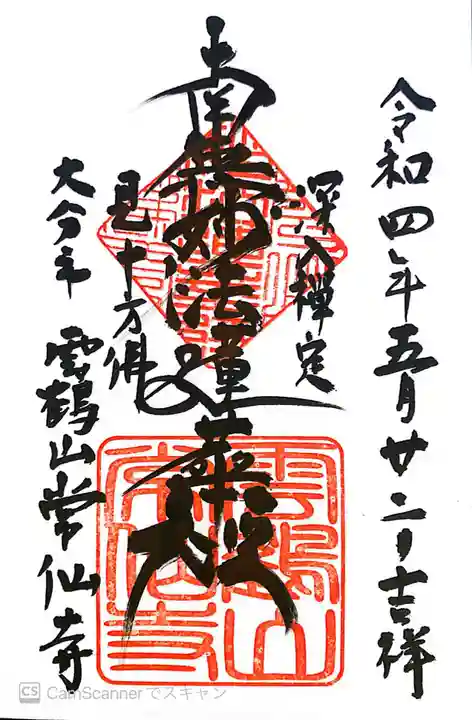 令和四年五月廿二日吉祥
深入禅定
南無妙法蓮華経
見十方佛
大分市 雲鶴山常仙寺
雲鶴山
常仙寺
CS CamScanner でスキャン